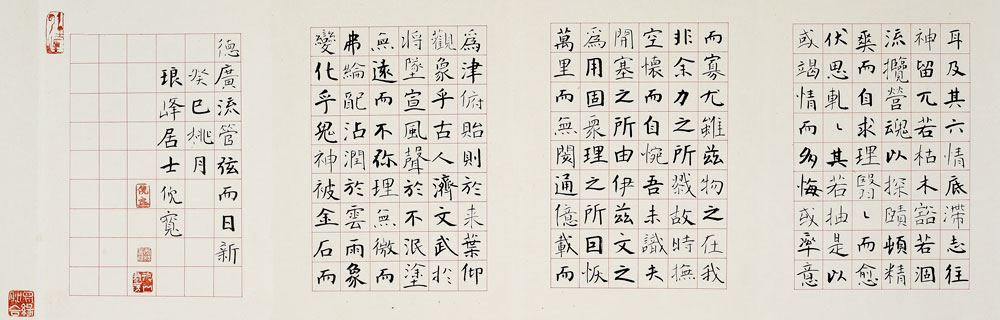 耳及其六情底滯志往
神留兀若枯木豁若涸
流攬營魂以探賾頓精
爽而自求理翳〻而愈
伏思軋〻其若抽是以
或竭情而多悔或率意
而寡尤雖茲物之在我
非余力之所戮故時撫
空懷而自惋吾未識夫
開塞之所由伊茲文之
為用固衆理之所因恢
萬里而無閡通億載而
為津俯貽則於来葉仰
觀象乎古人濟文武於
將墜宣風聲於不泯塗
無遠而不弥理無微而
弗綸配沾潤於雲雨象
變化乎鬼神被金石而
德廣流管弦而日新
癸巳桃月
琅峰居士倪寬